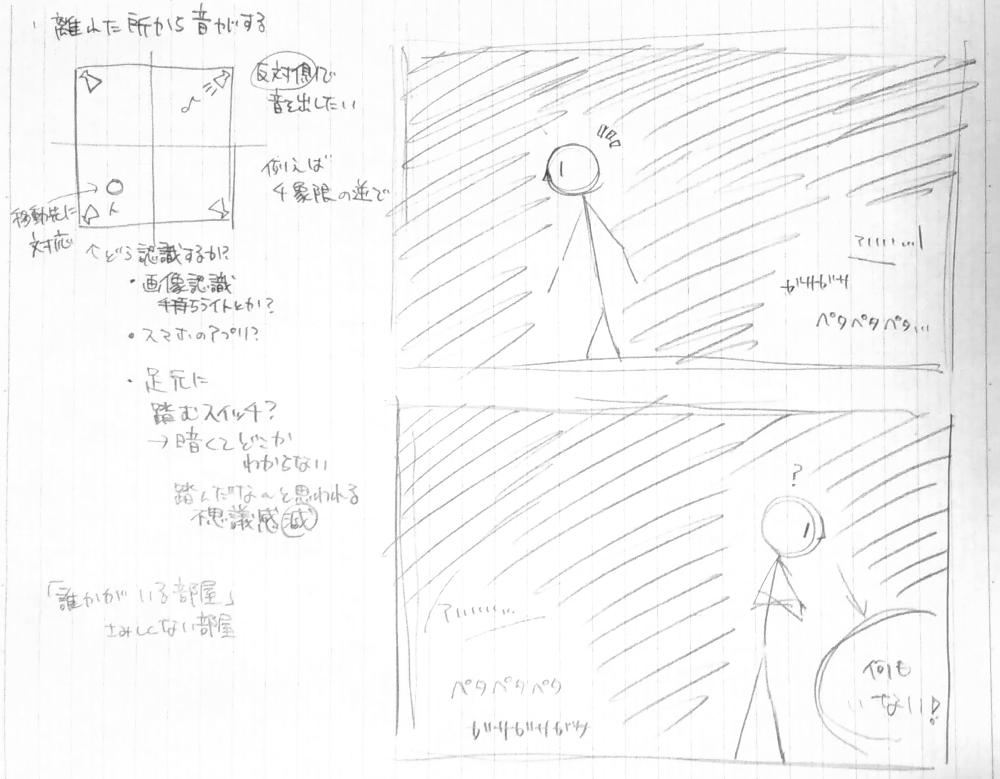 離れた所から音がする
反対側で
音を出したい
例えば
4象限の逆で
移動先に
対応
↑どう認識するか?
・画像認識
手持ちライトとか?
・スマホのアプリ?
・足元に
踏むスイッチ?
→暗くてどこか
わからない
踏んだなーと思われる
不思議感減
「誰かがいる部屋」
さみしくない部屋
ガサガサ
ペタペタペタ…
?
ペタペタペタ
ガサガサガサ
何も
いない!